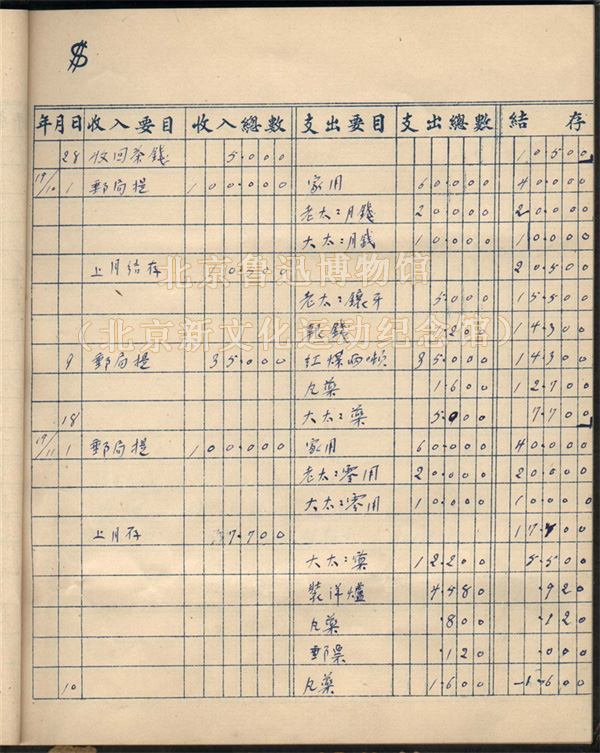 $
年月日 收入要目 收入總數 支出要目 支出總數 結存
28 收回茶錢 5.000 10500
19/10 1 郵局提 100.000 家用 60.000 40.000
老太:月錢 20.000 20.000
大太:月錢 10.000 10.000
上月結存 10500 20.500
老太:鑲牙 5.000 15.500
車錢 1.200 14.300
9 郵局提 35.000 紅煤兩頓 35.000 14.300
丸藥 1.600 12.700
18 大太:藥 5.000 7.700
19/11 1 郵局提 100.000 家用 60.000 40.000
老太:零用 20.000 20.000
大太:零用 10.000 10.000
上月存 7.700 17.700
大太:藥 12.200 5.500
裝洋爐 4.480 .920
丸藥 .800 .120
郵票 .120 .000
10 丸藥 1.600 -1.600
北京鲁迅博物馆
（北京新文化运动纪念馆）